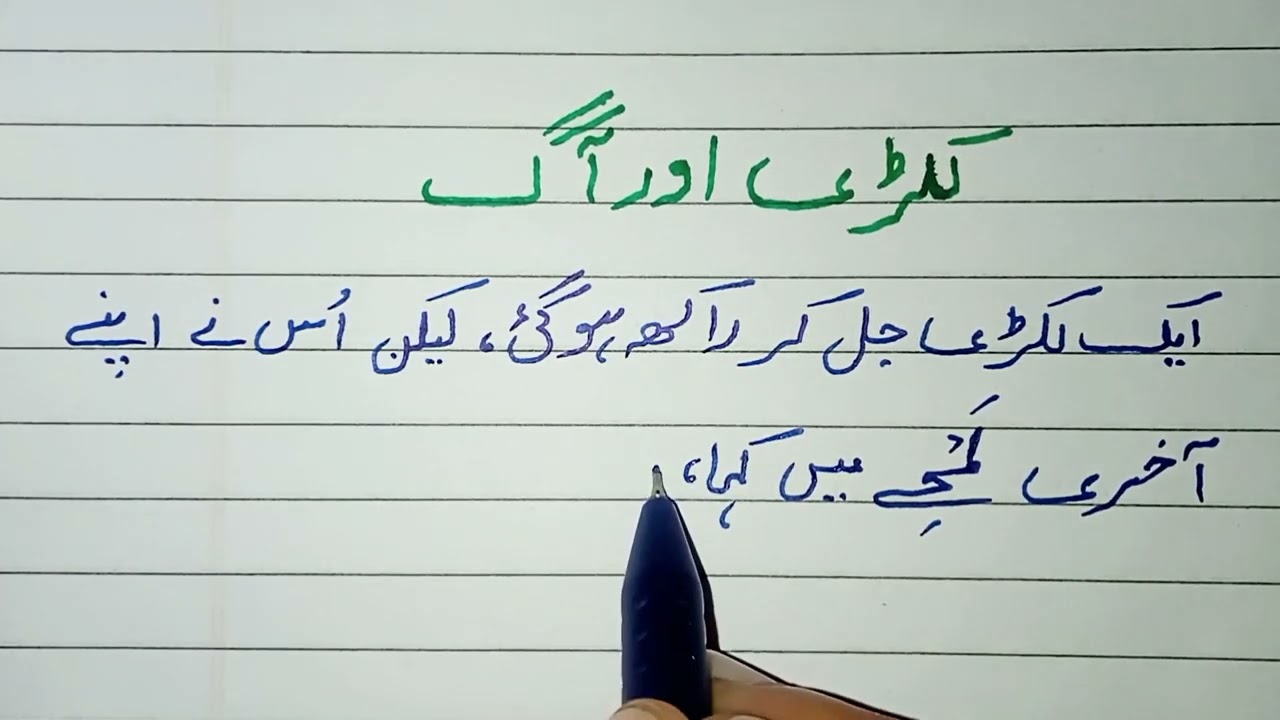 لکڑی اور آگ
ایک لکڑی جل کر راکھ ہو گئی، لیکن اُس نے اپنے
آخری لَمْحِے میں کہا،